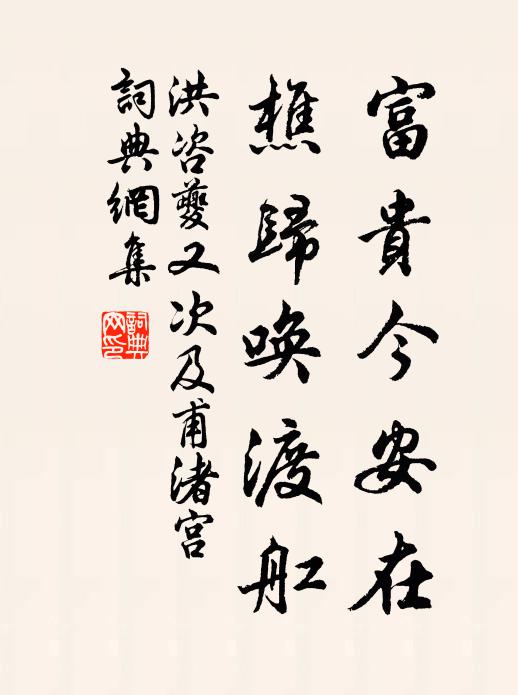 富貴今安在
樵歸喚渡舡
洪咨夔又次及甫渚宫
詞典網集
詞典网印